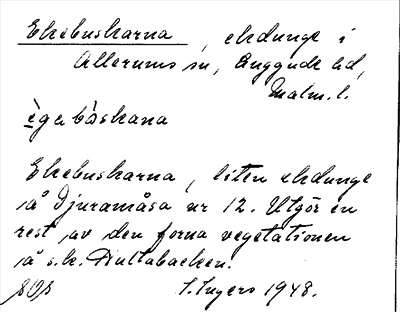 Ekebuskarna, ekdunge i
Allerums sn, Luggude hd,
Malm. l.
ègu bàskana
Ekebuskarna, liten ekdunge
på Djuramåsa nr 12. Utgör en
rest av den forna vegetationen
på s.k. Duttabacken.
S. Ingers 1948.